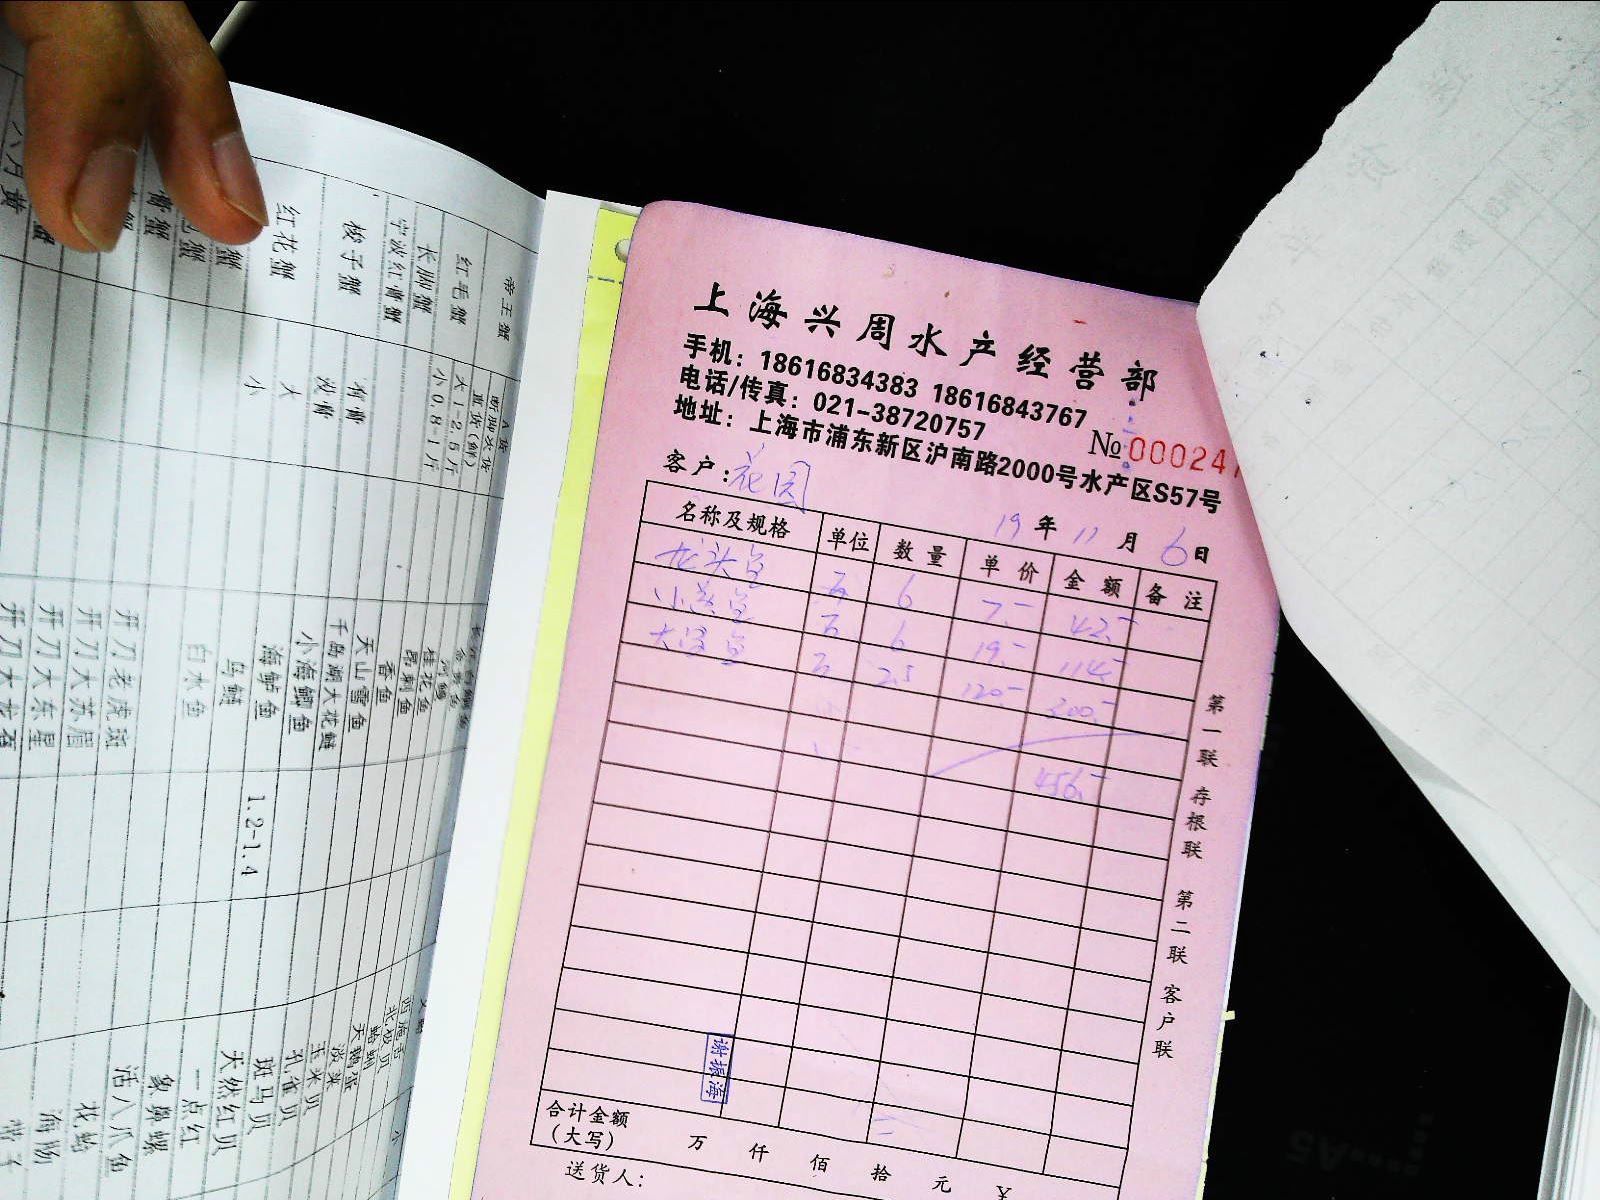 上海兴周水产经营部
手机：18616834383 18616843767
电话/传真：021-38720757
地址：上海市浦东新区沪南路2000号水产区S57号
№ 000024
客户：花园
19年11月6日
名称及规格 单位 数量 单价 金额 备注
龙头鱼 斤 6 7.- 42.-
小黄鱼 斤 6 19.- 114.-
斤 2.5 120.- 300.-
456.-
第一联 存根联 第二联 客户联
谢振海
合计金额（大写） 万 仟 佰 拾 元 ¥
送货人：
帝王蟹
红毛蟹
长脚蟹
宁波红膏蟹
梭子蟹
红花蟹
膏蟹
六月黄
A货
直货(鲜)
大1-2.5斤
小0.8-1斤
大
小
桂花鱼
昂刺鱼
香鱼
天山雪鱼
千岛湖大花鲢
小海鲫鱼
海鲈鱼
马鲢
白水鱼
开刀老虎斑
开刀大苏眉
开刀大东星
1.2-1.4
北极贝
天鹅蛋
淡菜
玉米贝
孔雀贝
斑马贝
天然红贝
一点红
象鼻螺
活八爪鱼
花蛤